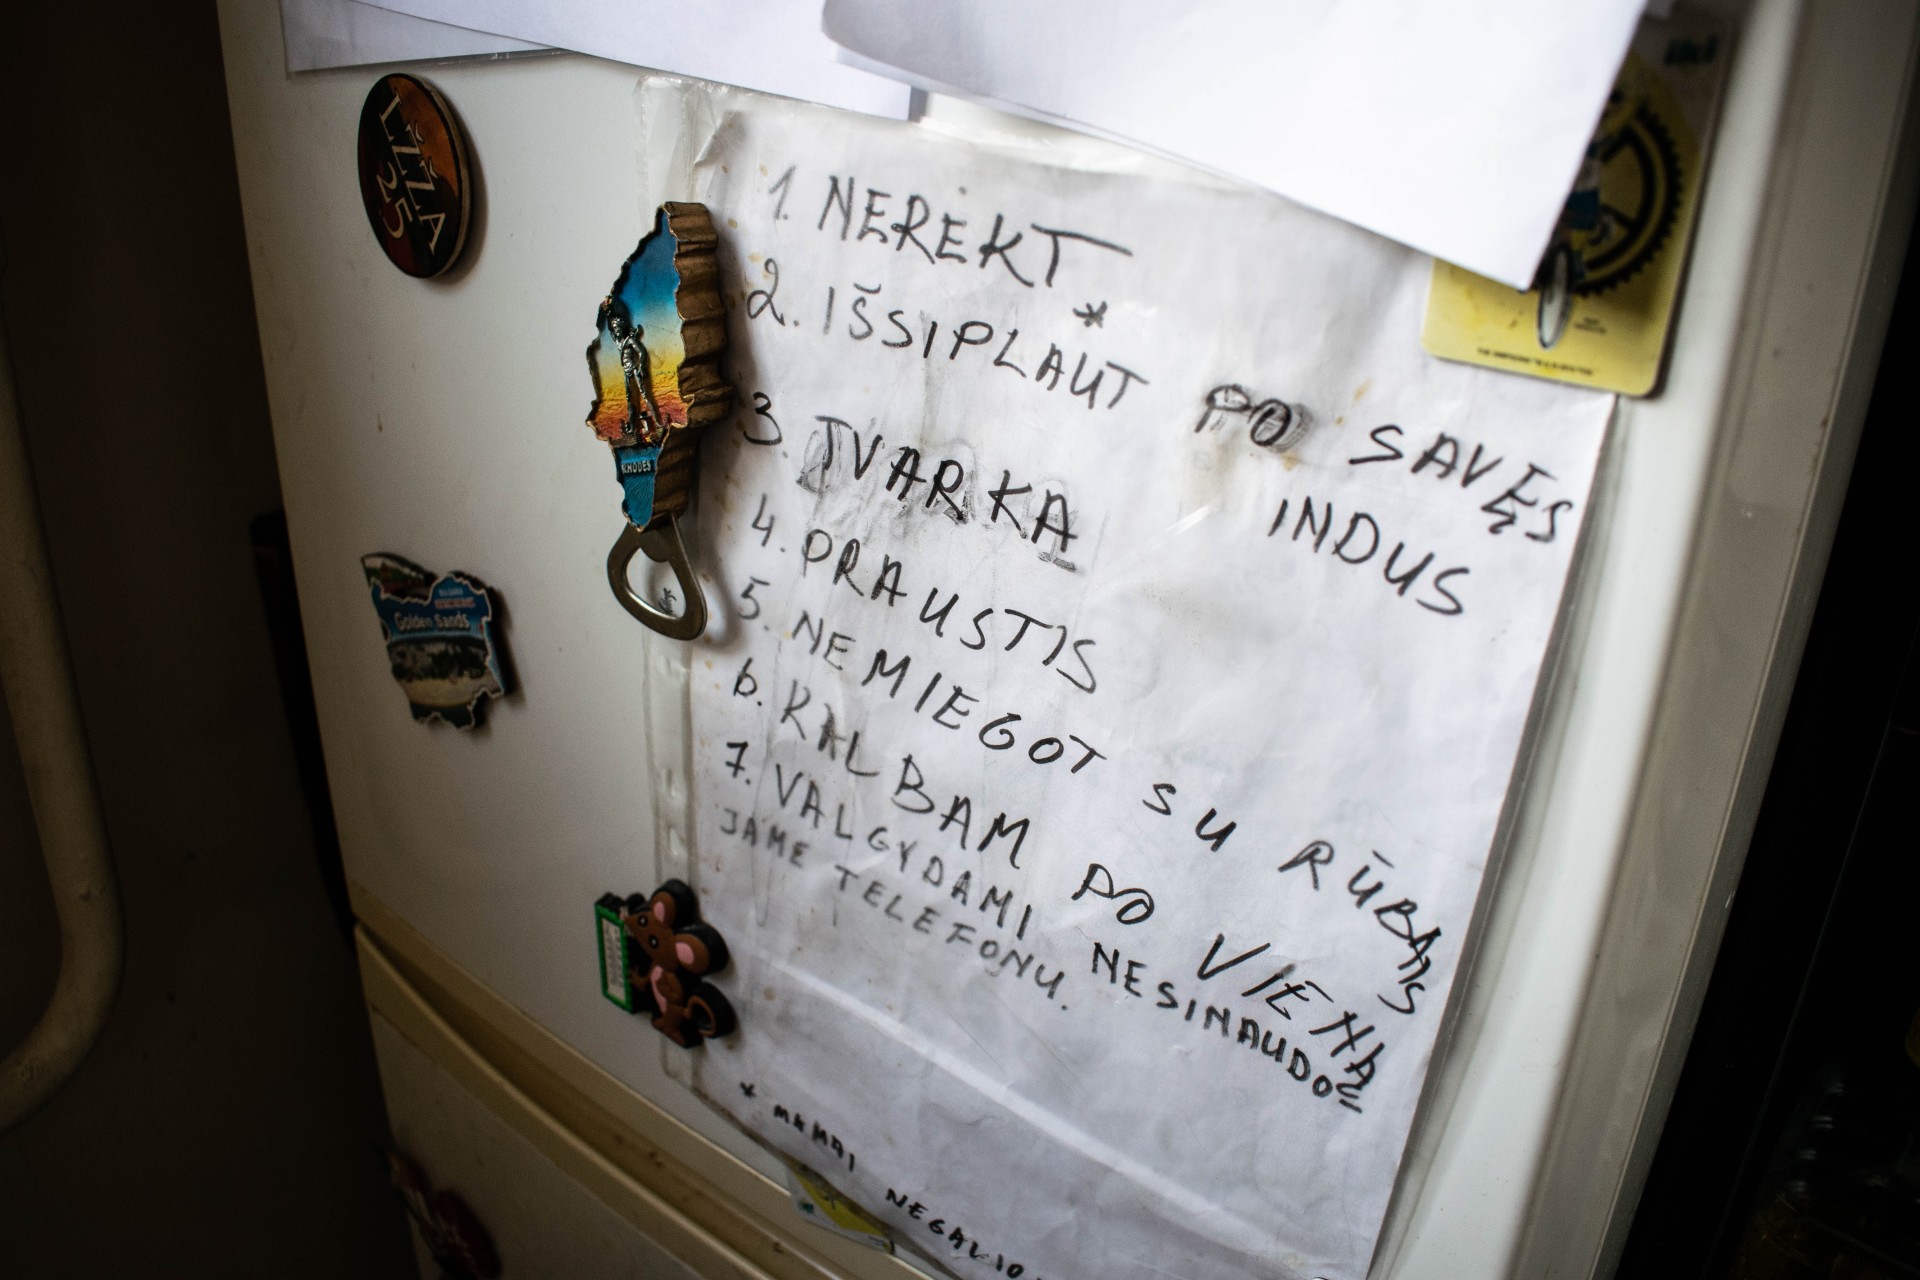 LŽŽA
25
1. NERĖKT *
2. IŠSIPLAUT PO SAVĘS
INDUS
3. TVARKA
4. PRAUSTIS
5. NEMIEGOT SU RŪBAIS
6. KALBAM PO VIENĄ
7. VALGYDAMI NESINAUDO=
JAME TELEFONU.
* MAMAI NEGALIO
RHODES
Golden Sands